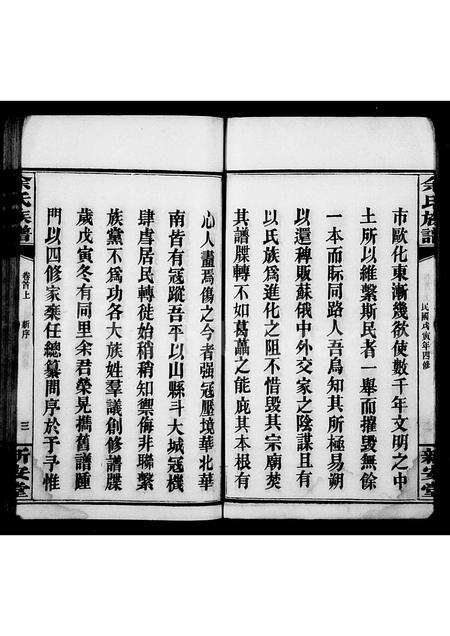 余氏族譜
民國戊寅年四修
新安堂
市歐化東漸幾欲使數千年文明之中
土所以維繫斯民者一舉而摧毀無餘
一本而眎同路人吾烏知其所極易朔
以還稗販蘇俄中外交家之陰謀且有
以氏族爲進化之阻不惜毀其宗廟焚
其譜牒轉不如葛藟之能庇其本根有
心人盡焉傷之今者强冦壓境華北華
南皆有冦蹤吾平以山縣斗大城冦機
肆虐居民轉徙始稍稍知禦侮非聯繫
族黨不爲功各大族姓羣議創修譜牒
歲戊寅冬有同里余君榮晃橋舊譜踵
門以四修家乘任總纂問序於于予惟
余氏族譜
卷首上
新序
三
新安堂